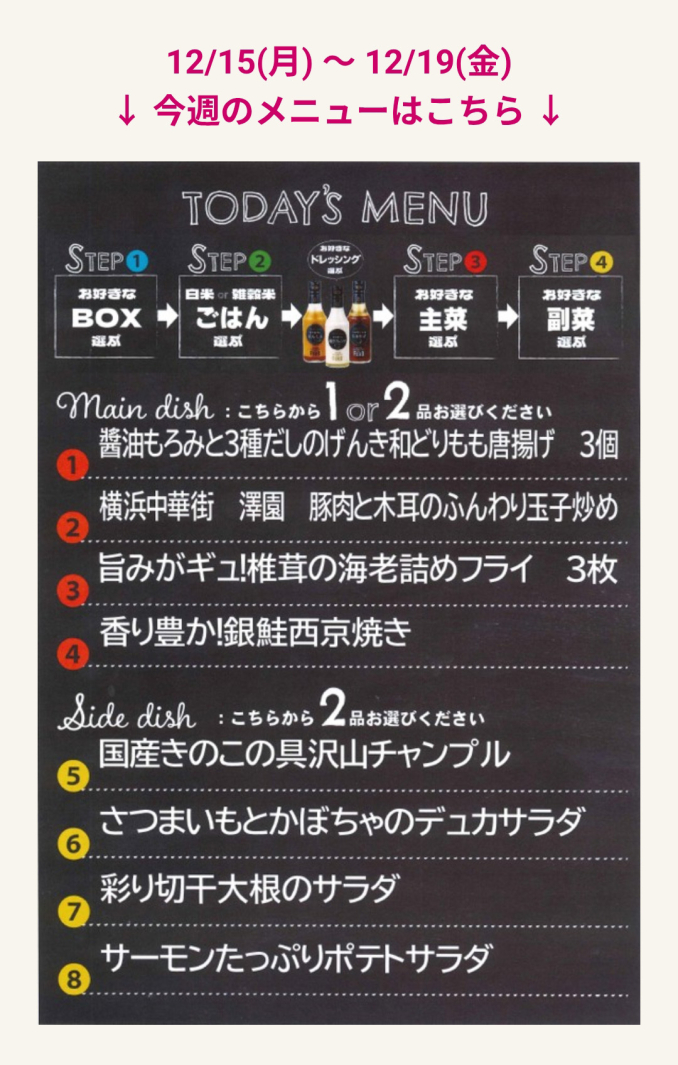 12/15(月) ～ 12/19(金)
↓ 今週のメニューはこちら ↓
TODAY'S MENU
STEP 1
お好きな
BOX
選ぶ
STEP 2
白米 or 雑穀米
ごはん
選ぶ
お好きな
ドレッシング
選ぶ
STEP 3
お好きな
主菜
選ぶ
STEP 4
お好きな
副菜
選ぶ
Main dish : こちらから 1 or 2 品お選びください
1 醤油もろみと3種だしのげんき和どりもも唐揚げ 3個
2 横浜中華街 澤園 豚肉と木耳のふんわり玉子炒め
3 旨みがギュ!椎茸の海老詰めフライ 3枚
4 香り豊か!銀鮭西京焼き
Side dish : こちらから 2 品お選びください
5 国産きのこの具沢山チャンプル
6 さつまいもとかぼちゃのデュカサラダ
7 彩り切干大根のサラダ
8 サーモンたっぷりポテトサラダ